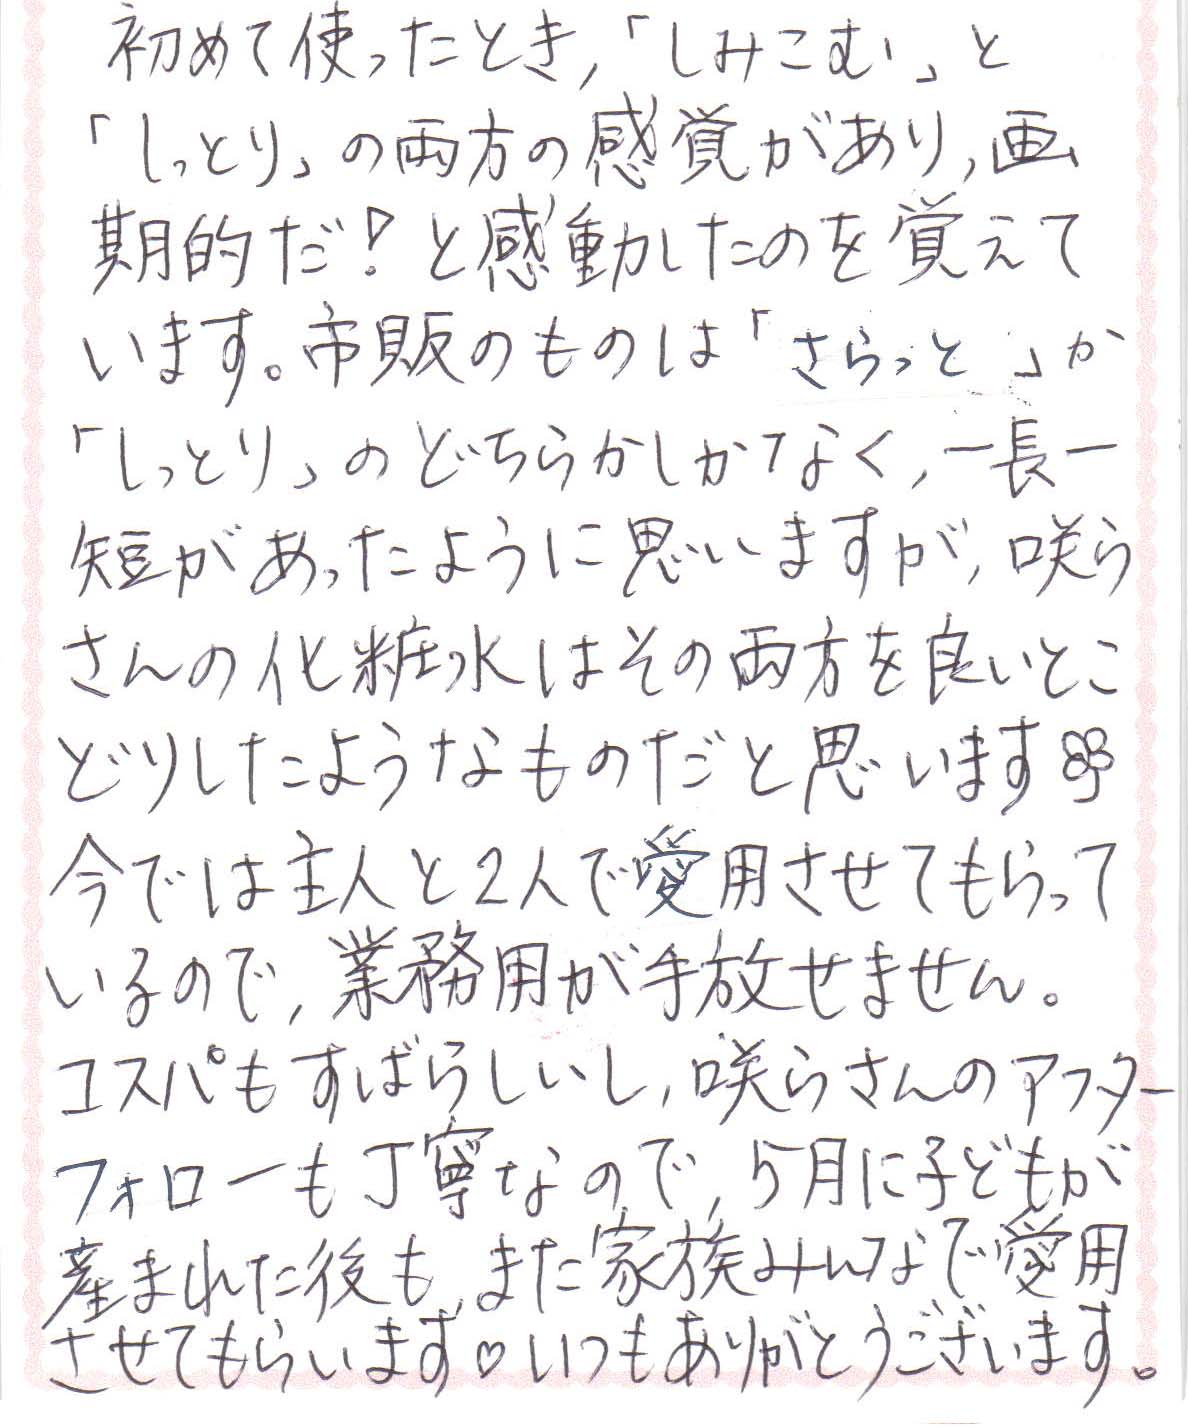 初めて使ったとき,「しみこむ」と
「しっとり」の両方の感覚があり,画
期的だ!と感動したのを覚えて
います。市販のものは「さらっと」か
「しっとり」のどちらかしかなく,一長一
短があったように思いますが,咲ら
さんの化粧水はその両方を良いとこ
どりしたようなものだと思います
今では主人と2人で愛用させてもらって
いるので,業務用が手放せません。
コスパもすばらしいし,咲らさんのアフター
フォローも丁寧なので,5月に子どもが
産まれた後も,また家族みんなで愛用
させてもらいます♡いつもありがとうございます。